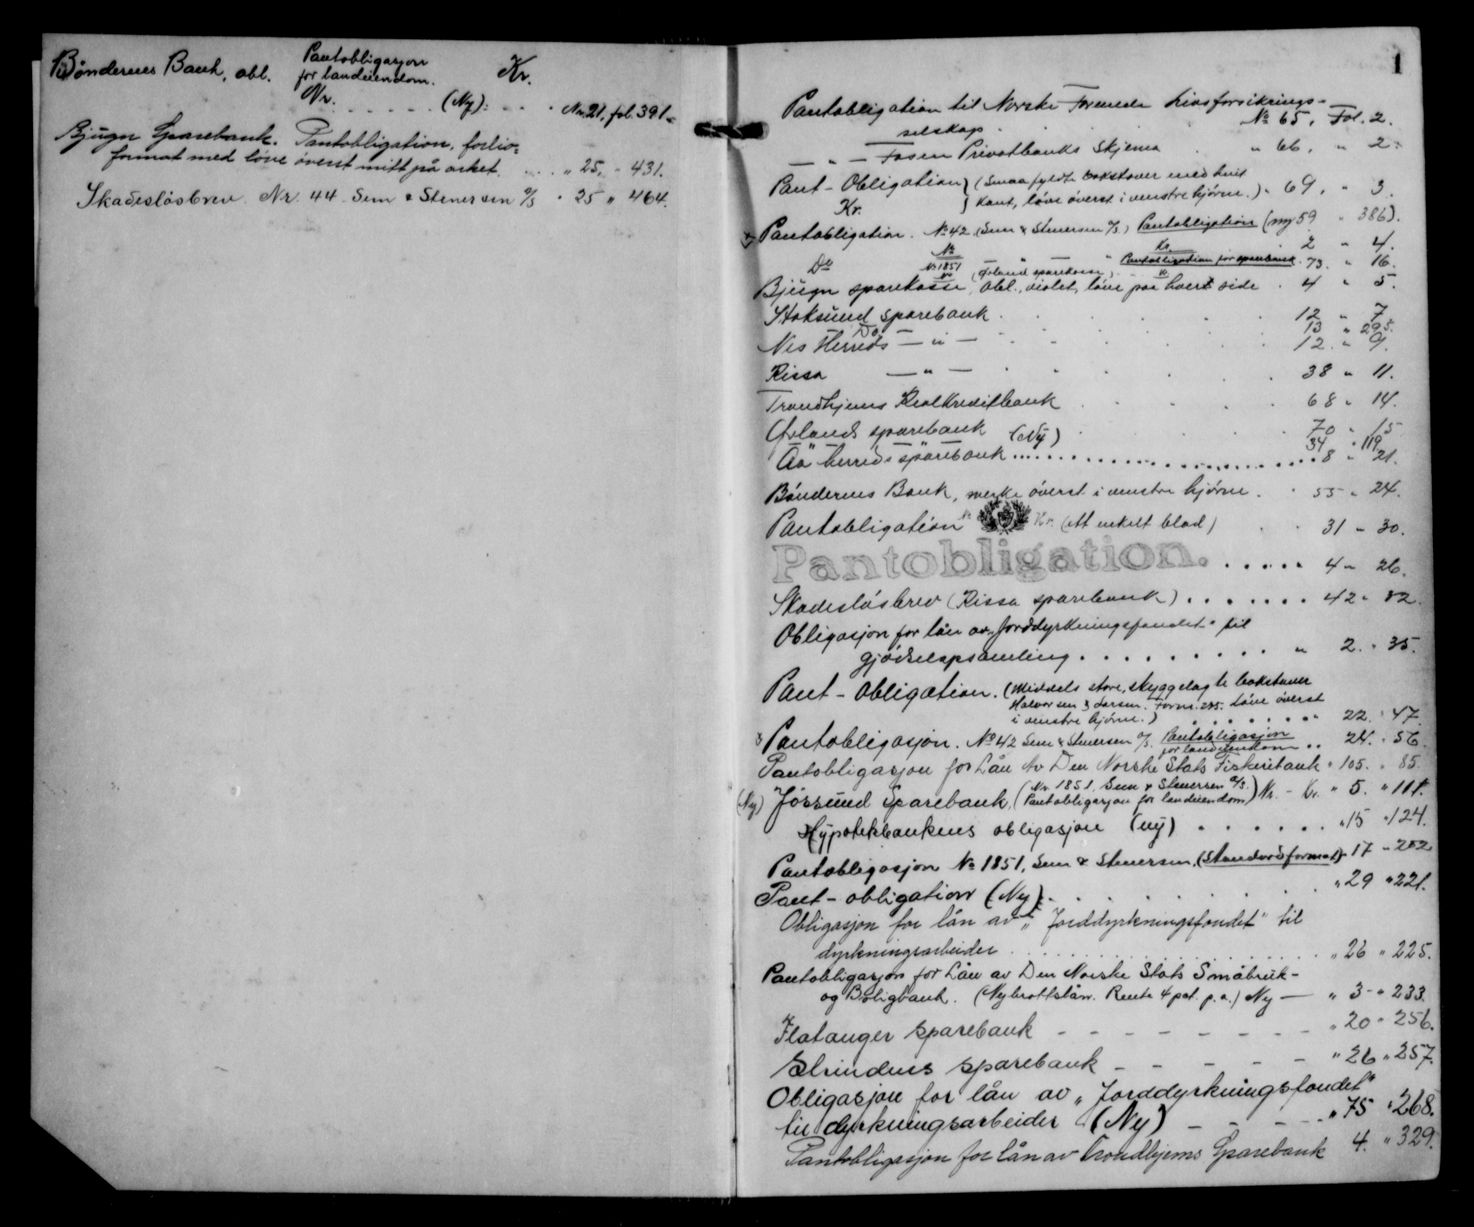 Bøndernes Bank, obl. Pantobligasjon
for landeiendom. Kr.
Nr. . . . . . (Ny): . . . Nr. 21, fol. 391.
Bjugn Sparebank. Pantobligation,
format med løve øverst midt på arket. . . . " 25, " 431.
Skadesløsbrev Nr. 44 Sem & Stenersen A/S " 25 " 464.
1
Pantobligation til Norske Forenede Livsforsikrings-
selskap . . . № 65, Fol. 2.
— " — Fosen Privatbanks Skjema . " 66, " 2.
Pant-Obligation (Smaa fyldte bokstaver med hvit
Kr. kant, løve øverst i venstre hjørne.) " 69, " 3.
Pantobligation. № 42 (Sem & Stenersen A/S) Pantobligation (ny 59 " 386).
№ Kr. 2 " 4.
Do № 1851 (Ørland sparekasse) Pantobligation for sparebank . 73. " 16.
Bjugn sparekasse, obl., violet, løve paa hver side . 4 " 5.
Stoksund sparebank . . . . 12 " 7.
Do 13 " 295.
Nes Herreds — " — . . . . 12. " 9.
Rissa — " — . . . . 38 " 11.
Trondhjems Realkreditbank . . . 68 " 14.
Ørlands sparebank . . . . 70 " 15
" " (Ny) 34 " 119
Aa herreds sparebank . . . . . . . . 8 " 21.
Bøndernes Bank, merke øverst i venstre hjørne . . 55 " 24.
Pantobligation № Kr. (ett enkelt blad) . . 31 " 30.
Pantobligation. . . . . . 4 " 26.
Skadesløsbrev (Rissa sparebank) . . . . . . . 42 " 82.
Obligasjon for lån av "Jorddyrkningsfondet" til
gjødselopsamling . . . . . . . . . " 2. " 35.
Pant-obligation. (Middels store, skyggelagte bokstaver
Halvorsen & Larsen. Form. 285. Løve øverst
i venstre hjørne.) . . . . . . . " 22. " 47.
Pantobligasjon. № 42 Sem & Stenersen A/S. Pantobligasjon
for landeiendom . . 24. " 56.
Pantobligasjon for Lån av Den Norske Stats Fiskeribank " 105. " 85.
(Ny) Jøssund Sparebank, (Nr. 1851, Sem & Stenersen A/S.
Pantobligasjon for landeiendom) Nr. - Kr. " 5. " 111.
Hypotekbankens obligasjon (ny) . . . . . . " 15 " 124.
Pantobligasjon № 1851, Sem & Stenersen, (Standardformat) " 17 " 202
Pant-obligation (Ny) . . . . . . " 29 " 221.
Obligasjon for lån av "Jorddyrkningsfondet" til
dyrkningsarbeider . . . . . . " 26 " 225.
Pantobligasjon for Lån av Den Norske Stats Småbruk-
og Boligbank. (Nybrottslån. Rente 4 pct. p.a.) Ny — " 3 " 233.
Flatanger sparebank - - - - - - - " 20 " 256.
Strindens sparebank - - - - - " 26 " 257.
Obligasjon for lån av "Jorddyrkningsfondet"
til dyrkningsarbeider (Ny) - - - - " 75 " 268.
Pantobligasjon for lån av Trondhjems Sparebank 4. " 329.